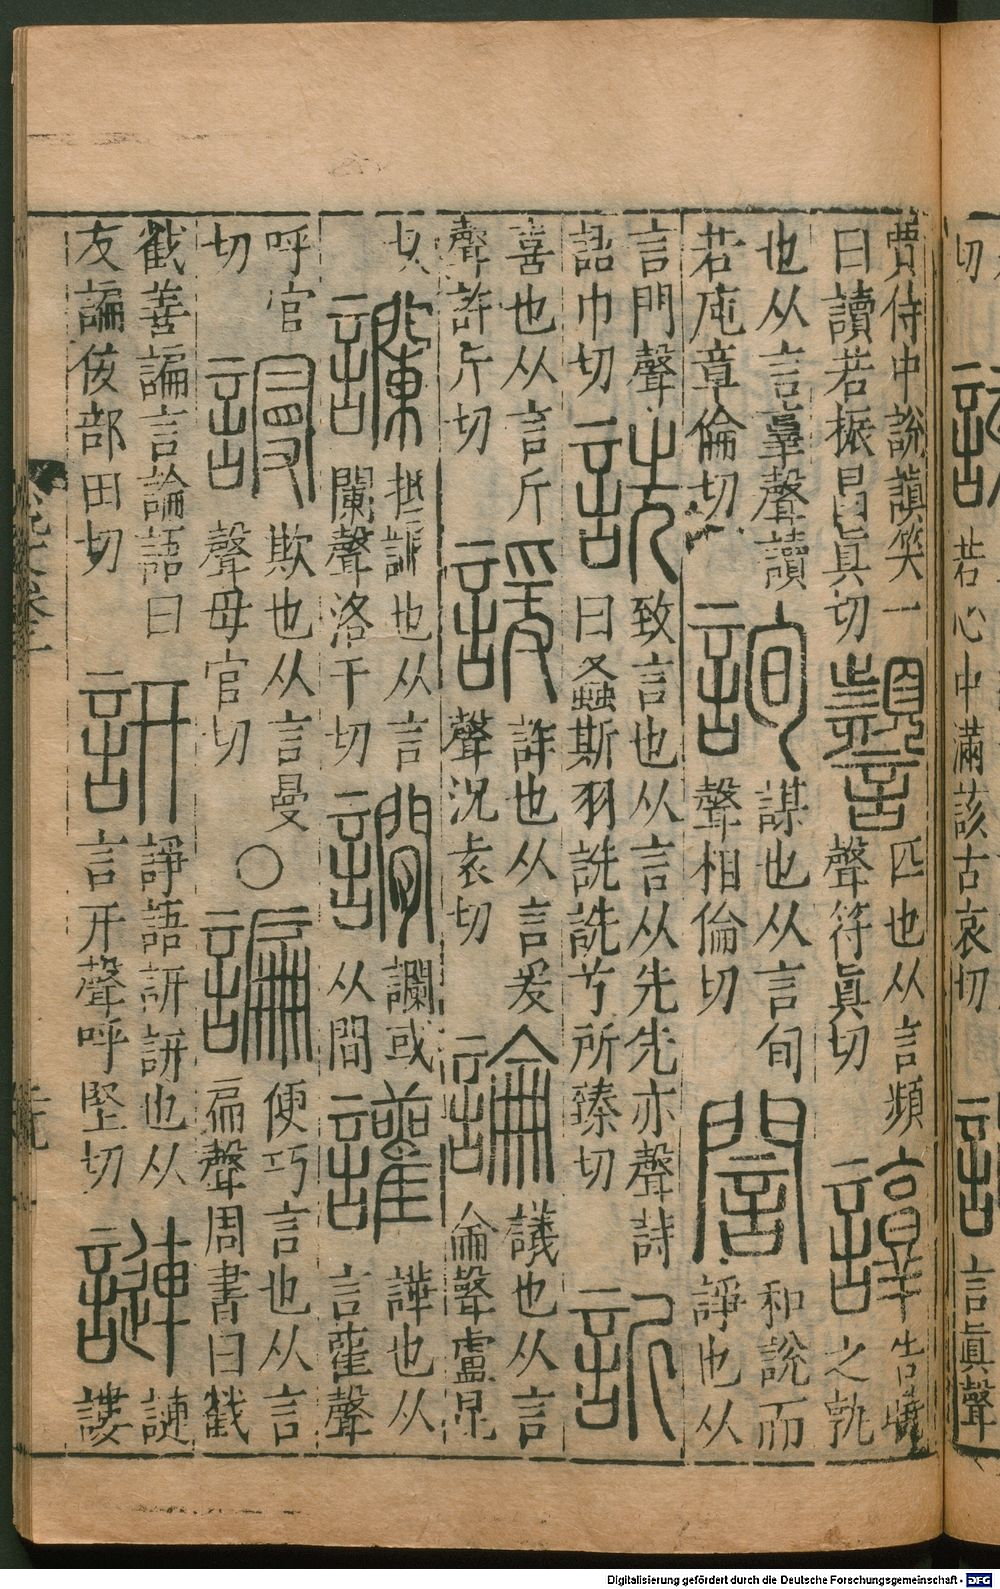 切
若心中滿該古哀切
言眞聲
賈侍中說謓笑一
曰讀若振昌眞切
䫬
匹也从言頻
聲符眞切
諄
告曉
之孰
也从言𦎫聲讀
若庉章倫切
詢
謀也从言旬
聲相倫切
誾
和說而
諍也从
言門聲
語巾切
詵
致言也从言从先先亦聲詩
曰螽斯羽詵詵兮所臻切
訢
喜也从言斤
聲許斤切
諼
詐也从言爰
聲況袁切
論
議也从言
侖聲盧昆
切
讕
抵讕也从言
闌聲洛干切
讕或
从閒
讙
譁也从
言雚聲
呼官
切
謾
欺也从言曼
聲母官切
○
諞
便巧言也从言
扁聲周書曰㦮
㦮善諞言論語曰
友諞佞部田切
訮
諍語訮訮也从
言幵聲呼堅切
謰
謰
謱